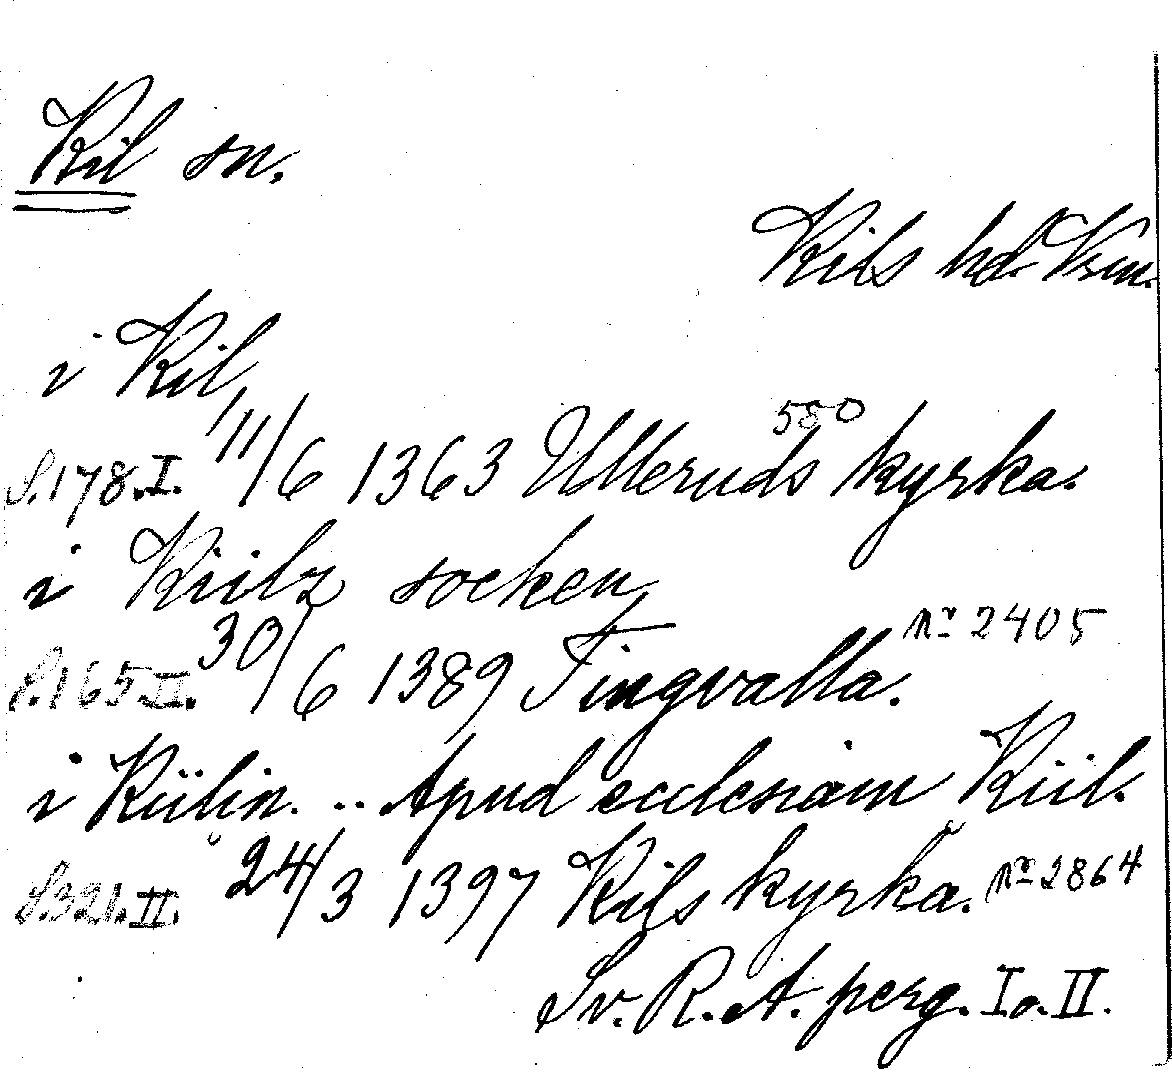 Kil sn.
Kils hd. Vrm.
i Kil
580
S. 178. I. 11/6 1363 Ulleruds kyrka.
i Kiilz socken
nr 2405
S. 165 II. 30/6 1389 Tingvalla.
i Kiilin. .. Apud ecclesiam Kiil.
S. 321. II. 24/3 1397 Kils kyrka. nr 2864
Sv. R. A. perg. I o. II.